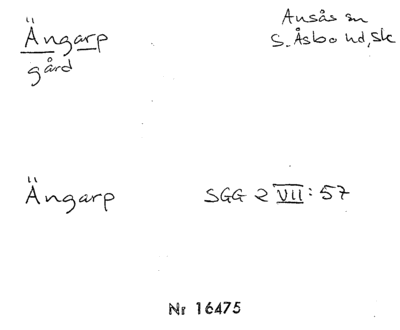 Ängarp
gård
Ausås sn
S. Åsbo hd, Sk
Ängarp
SGG 2 VII: 57
Nr 16475